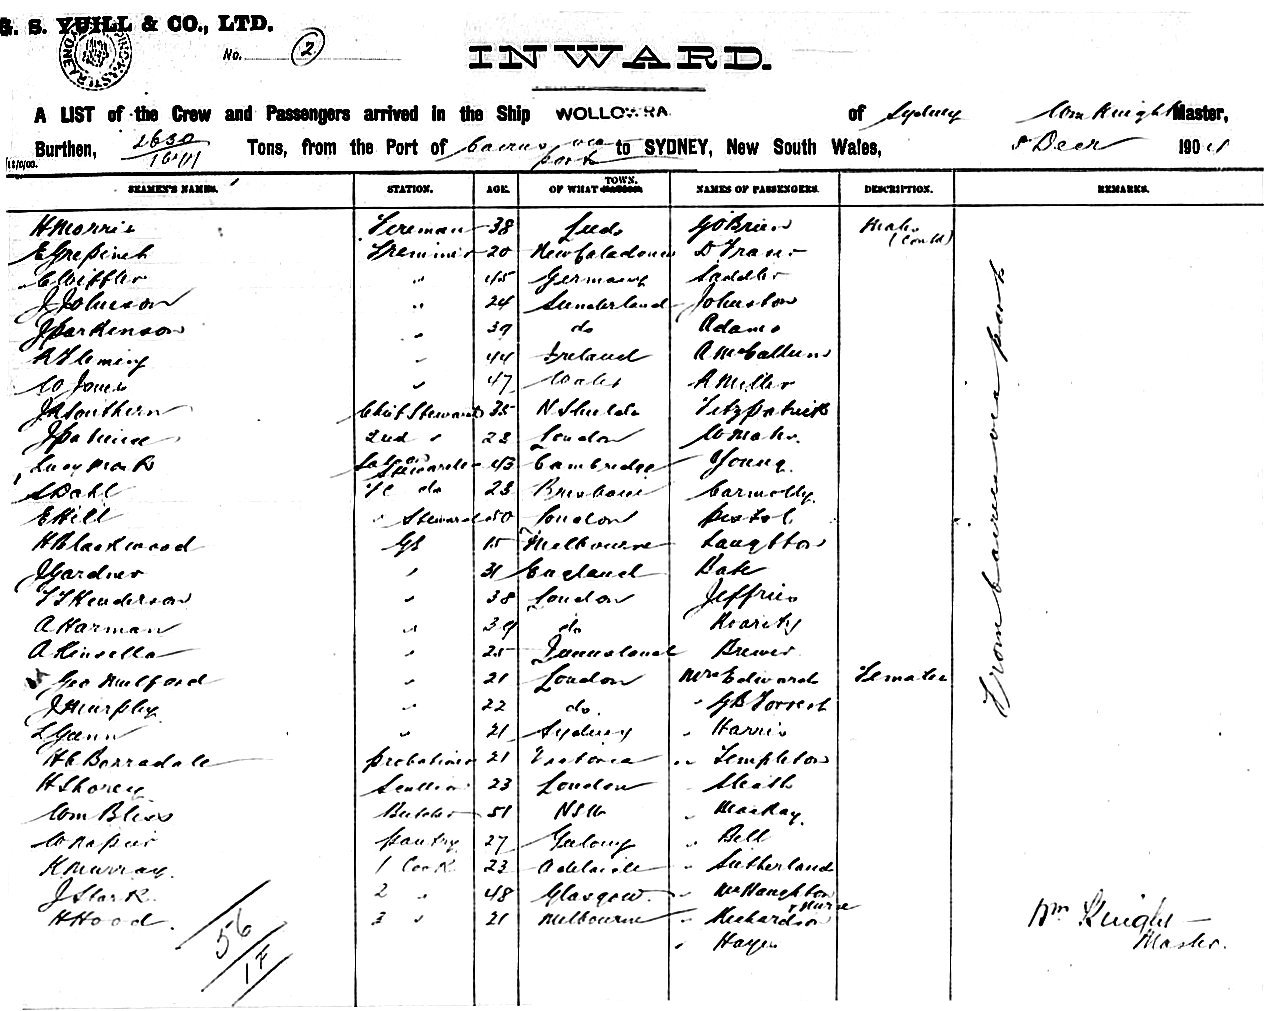 G. S. YUILL & CO., LTD.
No. 2
INWARD.
A LIST of the Crew and Passengers arrived in the Ship WOLLOWRA of Sydney Wm Knight Master,
Burthen, 2630 / Tons, from the Port of Cairns via ports to SYDNEY, New South Wales, 5 Decr 1904
SEAMEN'S NAMES. STATION. AGE. OF WHAT TOWN. NAMES OF PASSENGERS. DESCRIPTION. REMARKS.
H Morris Fireman 38 Leeds G O'Brien Males (Contd)
E Trimmer 20 New Caledonia D
C " 45 Germany Saddler
J Johnson " 24 Sunderland Johnston
J Parkinson " 39 do Adams
R Fleming " 44 Ireland A McCallum
W Jones " 47 Wales A Miller
J A Southern Chief Steward 35 N Shields Fitzpatrick
J 2nd " 23 London
Lucy Mark Saloon Stewardess 43 Cambridge Young
S Dahl 2c do 23 Brisbane Carmody
E Hill " Steward 50 London Pistol
H Blackwood GS 15 Melbourne Laughton
J Gardner " 31 England Bate
T F Henderson " 38 London Jeffries
A Harman " 39 do
A Kinsella " 25 Queensland Brewer
Geo Mulford " 21 London Mrs Edwards Females
J Murphy " 22 do " G B Forrest
L Gunn " 21 Sydney " Harris
H C Borradale Probationer 21 Victoria " Templeton
H Shorey Scullion 23 London " Sleath
Wm Bliss Butcher 51 NSW " MacKay
W Napier Pantry 27 Geelong " Bell
K Murray 1 Cook 23 Adelaide " Sutherland
J Stark 2 " 48 Glasgow " McNaughton & Nurse
H Hood 3 " 21 Melbourne " Richardson
" Hayes
From Cairns via ports
56
17
Wm Knight
Master.